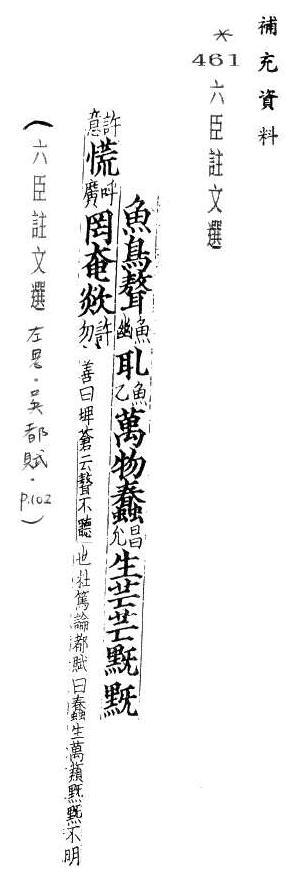 補充資料
*
461
六臣註文選
魚鳥聱魚幽耴魚乙萬物蠢昌允生芒芒黖黖
許意慌呼廣罔奄欻許勿善曰埤蒼云聱不聽也杜篤論都賦曰蠢生萬類黖黖不明
(六臣註文選左思.吳都賦.p.102)